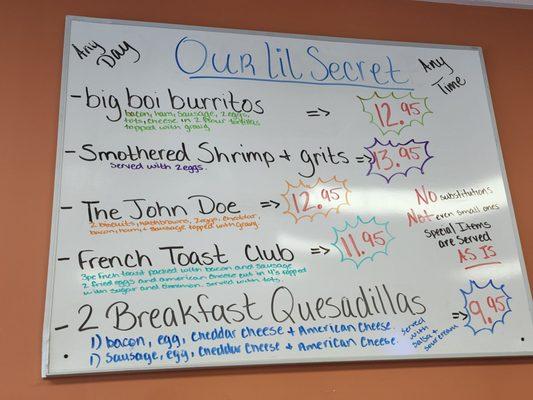 Any Day
Our Lil Secret
Any Time
- big boi burritos => 12.95
bacon, ham, sausage, 2 eggs,
tots, cheese in 2 flour tortillas
topped with gravy
- Smothered Shrimp + grits => 13.95
served with 2 eggs.
- The John Doe => 12.95
2 biscuits, hashbrowns, 2 eggs, cheddar,
bacon, ham, + sausage topped with gravy.
No substitutions
Not even small ones
Special Items
are Served
AS IS
- French Toast Club => 11.95
3pc french toast packed with bacon and sausage
2 fried eggs and american cheese cut in 4's topped
with sugar and cinnamon. served with tots.
- 2 Breakfast Quesadillas => 9.95
1) bacon, egg, cheddar cheese + American cheese.
1) sausage, egg, cheddar cheese + American cheese.
served
with
salsa +
sour cream